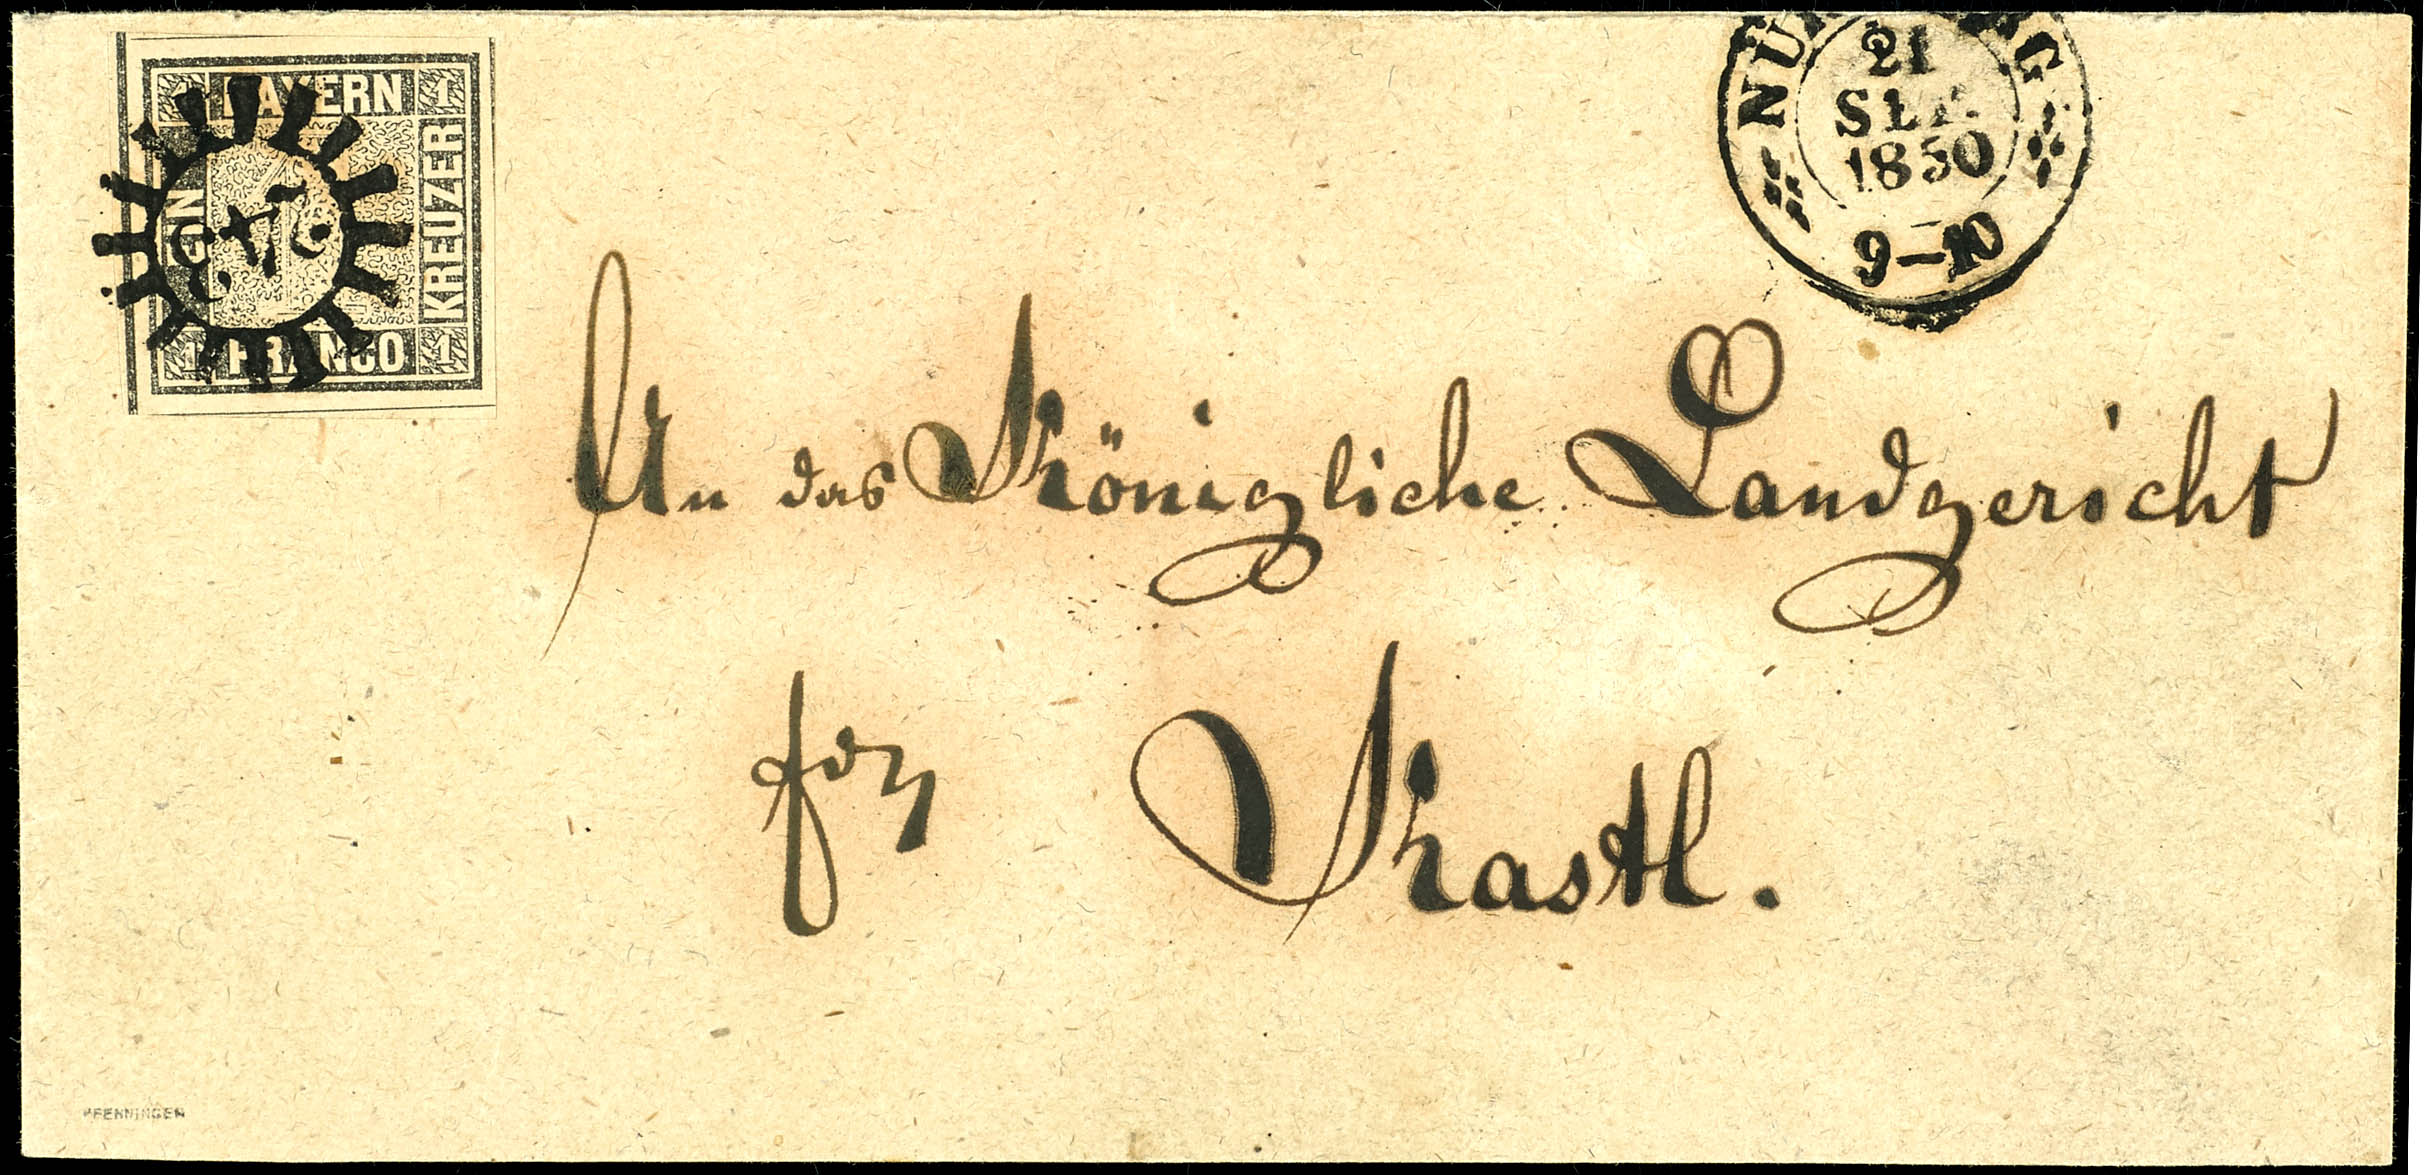 1 BAYERN 1
EIN
KREUZER
1 FRANCO 1
NÜRNBERG
21
SEP.
1850
9-10
An das Königliche Landgericht
Kastl.
PFENNINGER